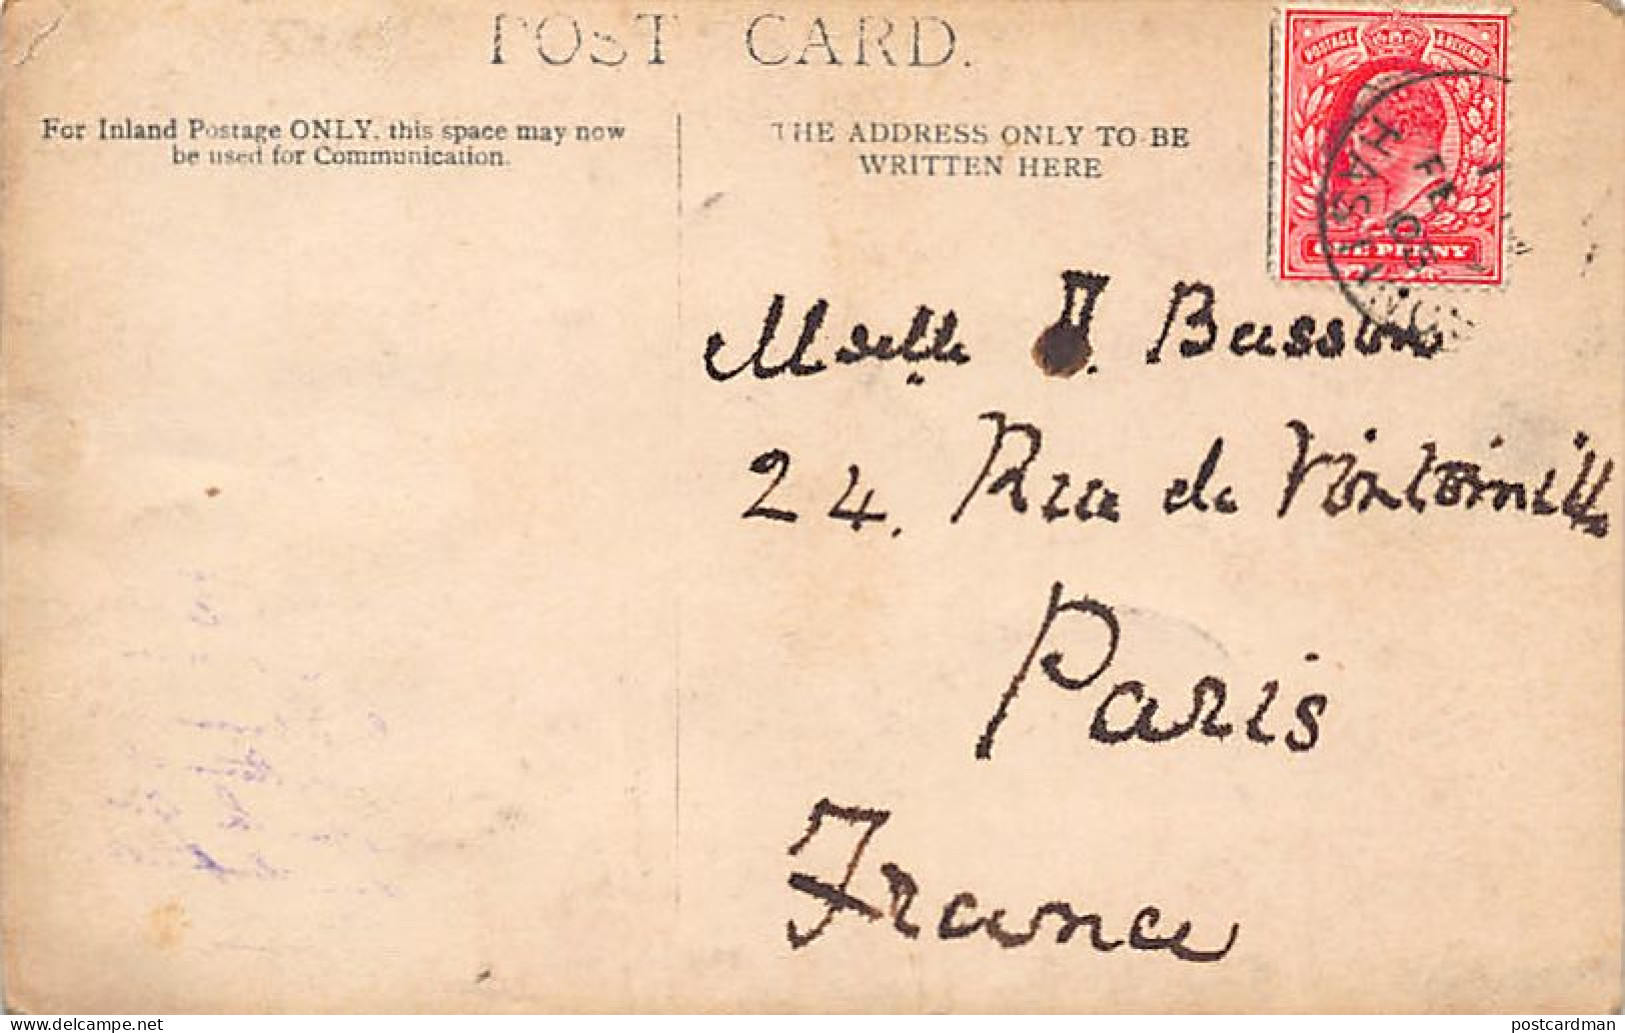 POST CARD.
For Inland Postage ONLY, this space may now
be used for Communication.
THE ADDRESS ONLY TO BE
WRITTEN HERE
POSTAGE & REVENUE
ONE PENNY
HASTINGS
FE
05
Mdelle J. Busson
24, Rue de Vintimille
Paris
France
postcardman